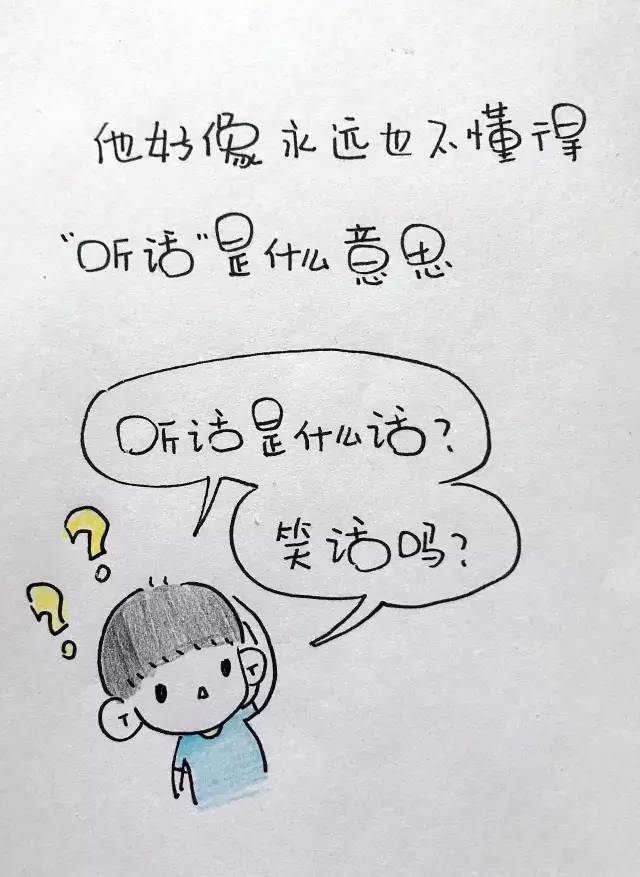 他好像永远也不懂得
“听话”是什么意思
听话是什么话?
笑话吗?